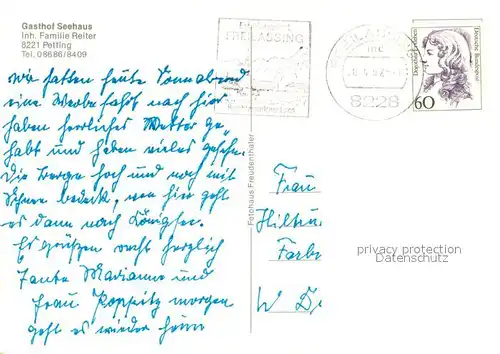 Gasthof Seehaus
Inh. Familie Reiter
8221 Petting
Tel. 08686/8409
FREILASSING
mc
8228
Dorothea Erxleben
Deutsche Bundespost
60
wir hatten heute Sonnabend
eine Werbefahrt nach hier
haben herrliches Wetter ge-
habt und haben vieles gesehn.
Die Berge hoch und noch mit
Schnee bedeckt, von hier geht
es dann nach Königsee.
Es grüßen recht herzlich
Tante Marianne und
Frau Poppitz morgen
geht es wieder heim
Fotohaus Freudenthaler
Frau
Hiltru
Farbe
W D
privacy protection
Datenschutz